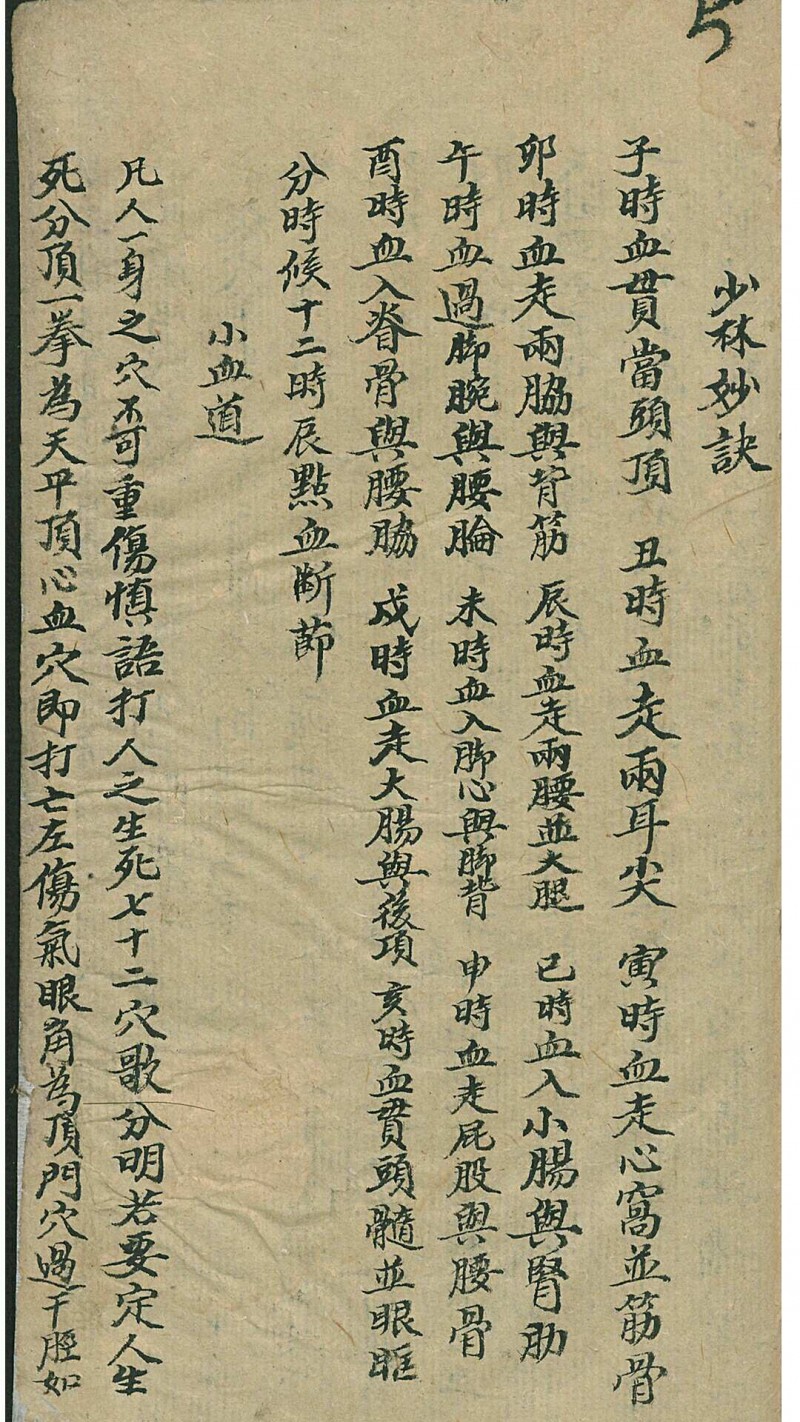 5
少林妙訣
子時血貫當頭頂 丑時血走兩耳尖 寅時血走心窩並筋骨
卯時血走兩脇與背筋 辰時血走兩腰並大腿 已時血入小腸與腎肋
午時血過脚腕與腰腀 未時血入脚心與脚背 申時血走屁股與腰骨
酉時血入脊骨與腰脇 戍時血走大腸與後項 亥時血貫頭髓並眼眶
分時候十二時辰點血断節
小血道
凡人一身之穴不可重傷慎語打人之生死七十二穴歌分明若要定人生
死分頂一拳為天平頂心血穴即打亡左傷氣眼角為頂門穴過千脛如